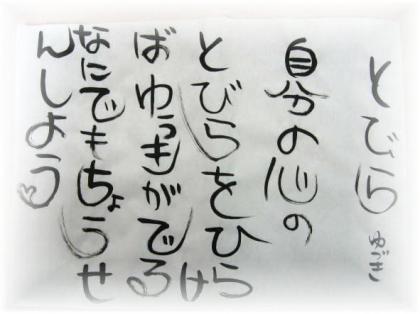 とびら
ゆづき
自分の心の
とびらをひらけ
ばゆうきがでる
なにでもちょうせ
んしよう